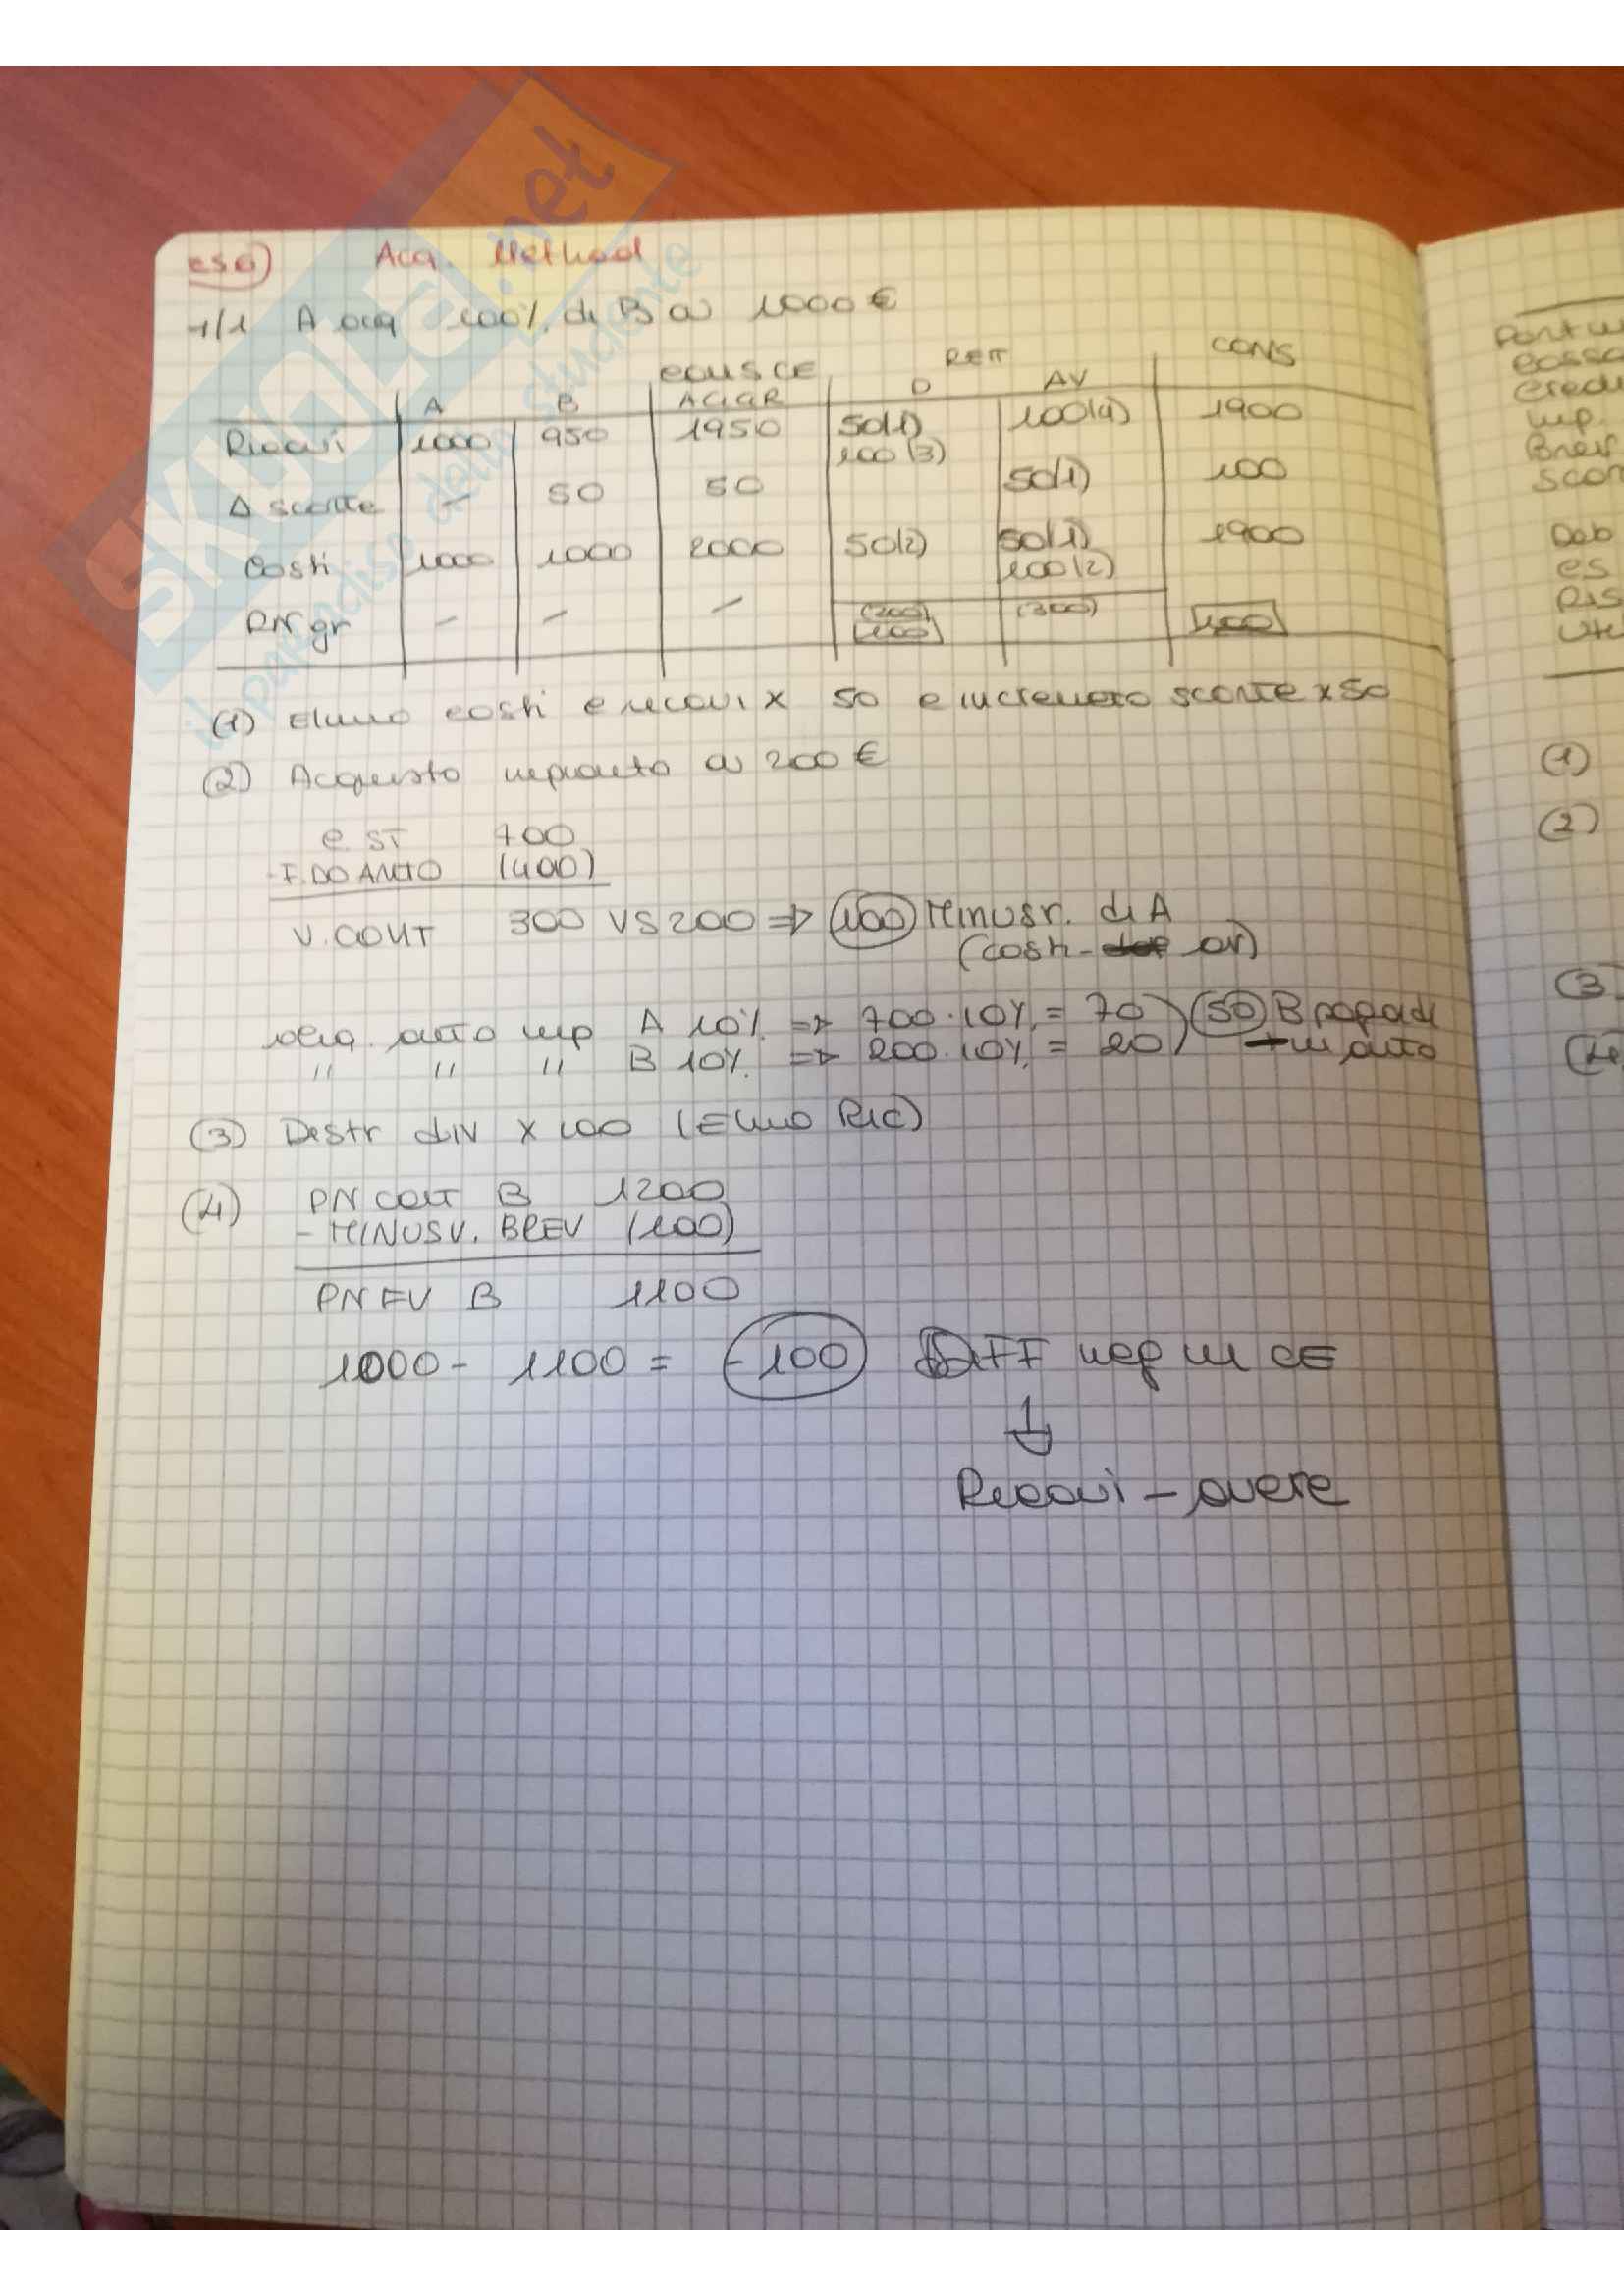 SKUOLA.net
il paradiso dello studente
es 6) Acq. Method
1/1 A acq 100% di B a 1000 €
RETT CONS
CONS CE
A B AGGR D AV
Ricavi 1000 950 1950 50(1) 100(4) 1900
100(3)
Δ scorte - 50 50 50(1) 100
Costi 1000 1000 2000 50(2) 50(1) 1900
100(2)
RN gr - - - (200) (300) 100
100
(1) Elimino costi e ricavi x 50 e incremento scorte x 50
(2) Acquisto impianto a 200 €
C. ST 700
- F.DO AMTO (400)
V. CONT 300 VS 200 => 100 Minusv. di A
(costi - av)
aliq. amto imp A 10% => 700·10% = 70 50 B paga di
" " " B 10% => 200·10% = 20 + in amto
(3) Distr div x 100 (Elimino Ric)
(4) PN CONT B 1200
- MINUSV. BREV (100)
PN FV B 1100
1000 - 1100 = -100 DIFF neg in CE
Ricavi - avere
Brev
Deb
es
Ris
(1)
(2)
(3